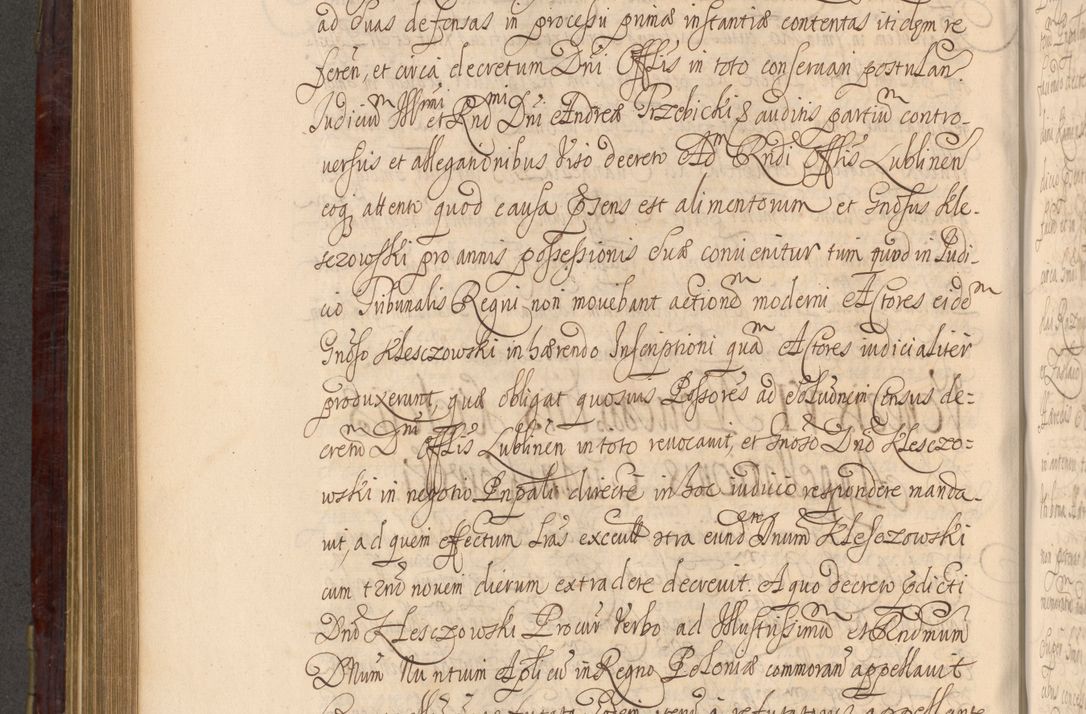 ad suas defensas in processu primæ instantiæ contentas itidem re
feren, et circa decretum Dni Offlis in toto conseruan postulan.
Judiciu Illmi et Rndmi Dni Andreæ Trzebicki & auditis partiu contro-
uersiis et allegaonibus viso decreto Adm Rndi Offlis Lublinen
eoq attento quod causa pñsens est alimentorum et Gnosus Kle-
sczowski pro annis possessionis suæ conuenitur tum quod in Judi-
cio Tribunalis Regni non mouebant actionem moderni Actores eidem
Gnoso Klesczowski in hærendo Inscriptioni quam Actores iudicialiter
produxerunt, quæ obligat quosuis Possores ad soluonem Census de-
cretum Dni Offlis Lublinen in toto reuocauit, et Gnoso Dno Klesczo-
wski in negotio Pnpali directe in hoc iudicio respondere manda-
uit, ad quem effectum Lras contra eund Dnum Klesczowski
cum termo nouem dierum extradere decreuit. A quo decreto pdicti
Dni Klesczowski Procur verbo ad Illustrissimum et Rndmum
Dnum Nuntium Aplicu in Regno Poloniæ commoran appellauit